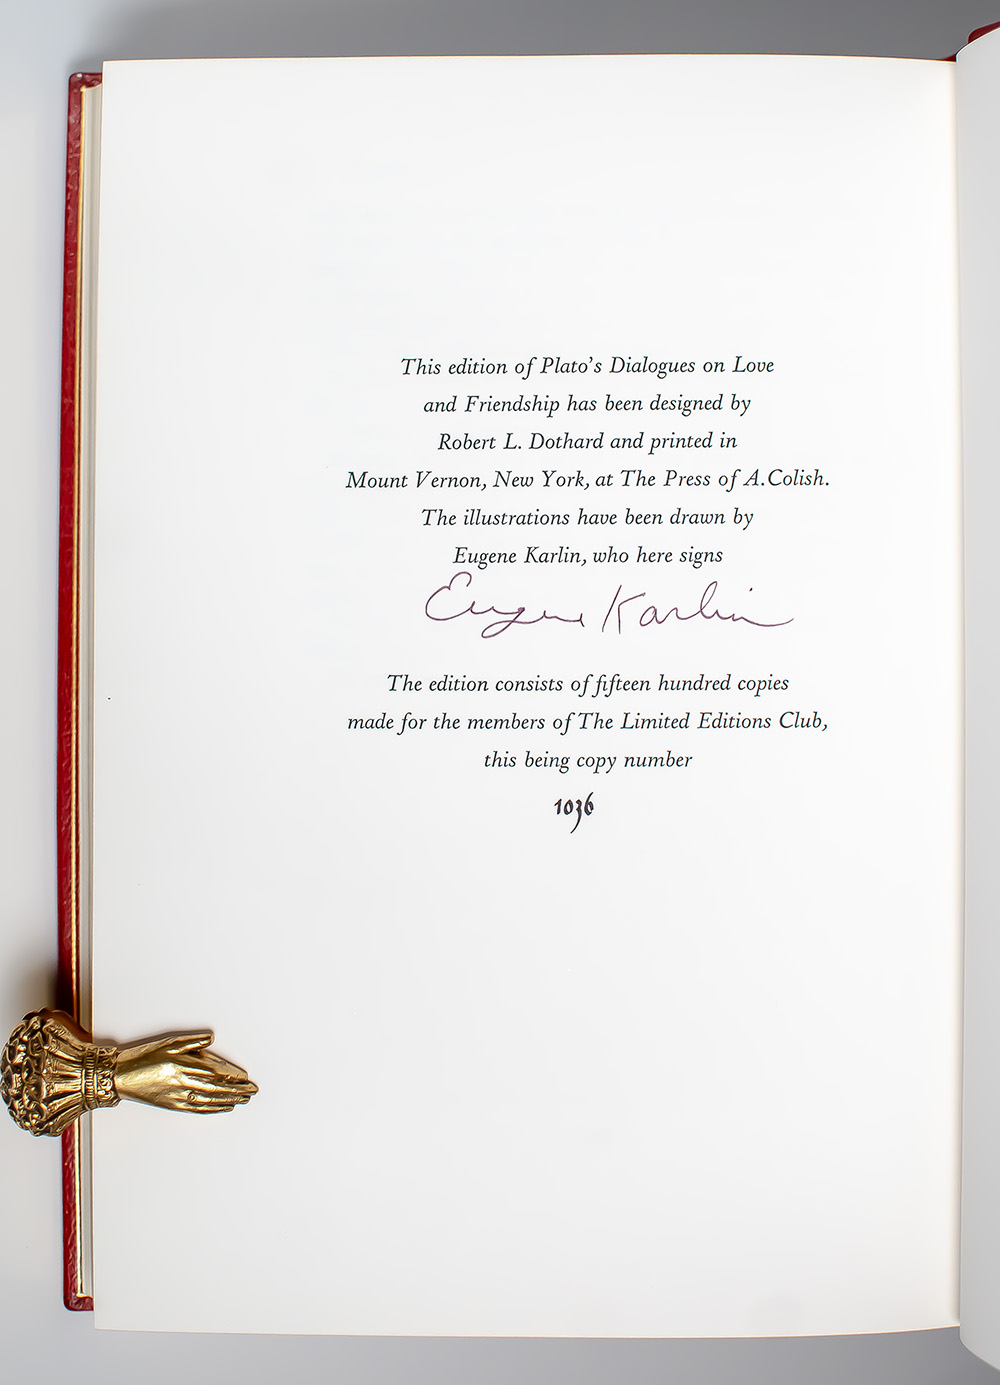 This edition of Plato's Dialogues on Love
and Friendship has been designed by
Robert L. Dothard and printed in
Mount Vernon, New York, at The Press of A.Colish.
The illustrations have been drawn by
Eugene Karlin, who here signs
Eugene Karlin
The edition consists of fifteen hundred copies
made for the members of The Limited Editions Club,
this being copy number
1036